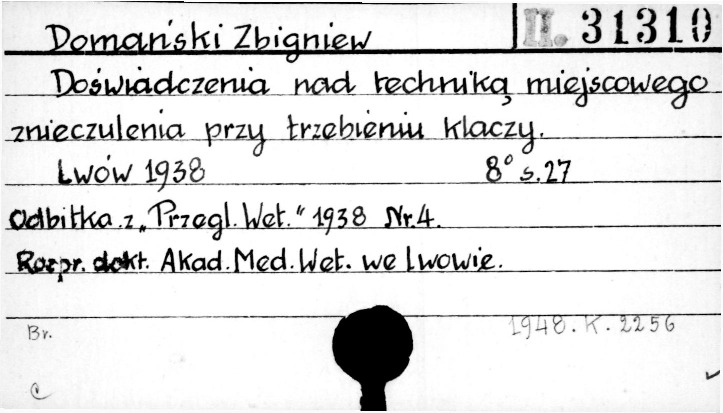 Domański Zbigniew II. 31310
Doświadczenia nad techniką miejscowego
znieczulenia przy trzebieniu klaczy.
Lwów 1938 8° s. 27
Odbitka z „Przegl. Wet.“ 1938 Nr. 4.
Rozpr. dokt. Akad. Med. Wet. we Lwowie.
Br. 1948. K. 2256
C